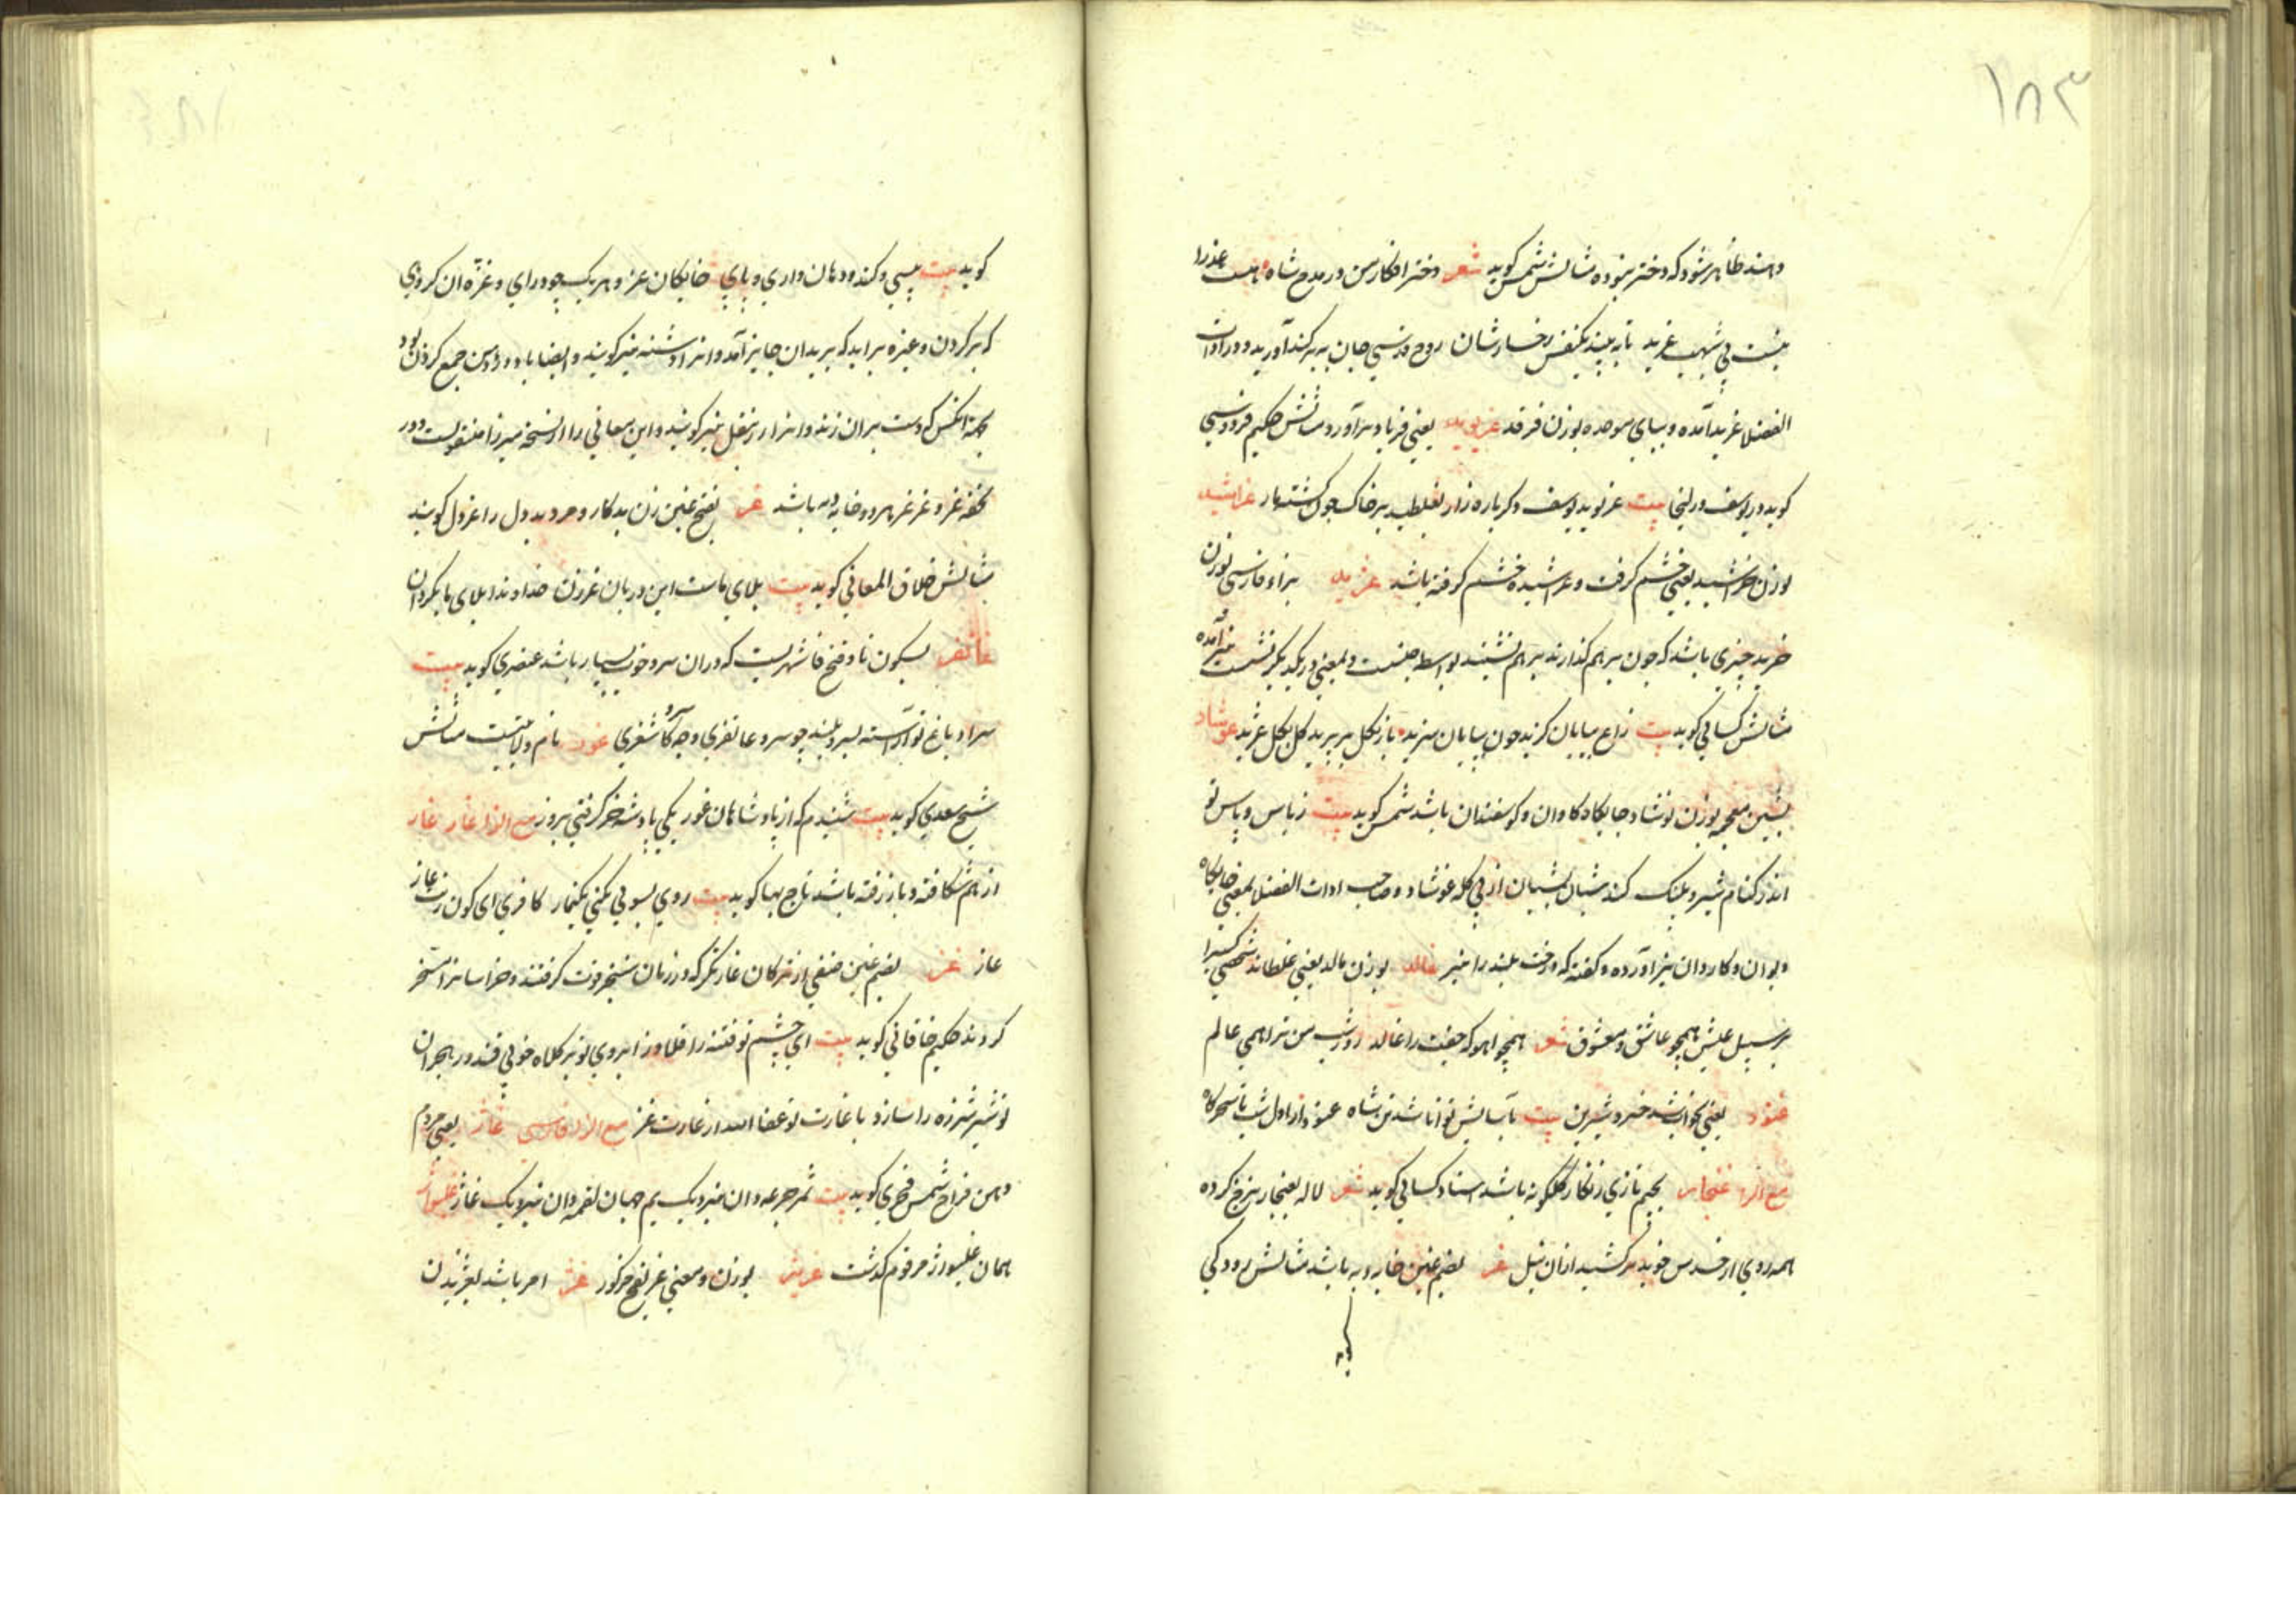 ۱۸۳
دهند ظاهر شود که دختر نبوده مثالش شمس کوید شعر دختر افکار من در مدح شاه هست عذرا
نیست بی شبهت غرید تا به بیند یکنفس رخسارشان روح قدسی جان به بر کند آورید و در ادات
الفضلا غرید آمده و ببای موحده بوزن فرقد غریوید یعنی فریاد برآورد مثالش حکیم فردوسی
کوید در یوسف و زلیخا بیت غریوید یوسف دکرباره زار بغلطید بر خاک چون کشته مار غراشید
بوزن خراشید یعنی خشم کرفت و غراشیده خشم کرفته باشد غژید بزاء فارسی بوزن
خرید چیزی باشد که چون بر هم کذارند بر هم نشیند بواسطه جنسیت و بمعنی در یکدیکر نشست نیز آمده
مثالش کسائی کوید بیت زاغ بیابان کزید چون به بیابان سزید باز بکل بر برید کل بکل غژید غوشاد
بشین معجمه بوزن نوشاد جایکاه کاوان و کوسفندان باشد شمس کوید بیت ز باس و پاس تو
اندر کنام شیر و پلنک کنند شبان از پی کله غوشاد و صاحب ادات الفضلا بمعنی جایکاه
دیوان و کاروان نیز آورده و کفته که درخت بلند را نیز غالد بوزن مالد یعنی غلطاند شخصی کسیرا
بر سبیل عیش همچو عاشق و معشوق شعر همچو آهو که جفت را غالد روز و شب من ترا همی عالم
غنود یعنی بخواب شد خسرو شیرین بیت بآسایش توانا شد تن شاه غنود از اول شب تا سحرگاه
مع الراء غنجار بجیم تازی زنکار کلکونه باشد استاد کسائی کوید شعر لاله بغنجار سرخ کرده
همه روی از حسد خوید بر کشید ازان نیل غر بضم غین خایه دبه باشد مثالش رودکی
کوید
کوید بیت پیسی و کنده دهان داری و پای خایکان غر و هر یک چو درای و غره آن کروهی
که بر کردن و غیره براید که بریدان جایز آمد و انرا دشنه نیز کویند و ایضا باد در دهن جمع کردن بود
بجهة آنکس که دست بران زند و انرا زنبغل نیز کویند و این معانی را از نسخه میرزا منقولست و در
تحفه غر و غرغر هر دو خایه دبه باشد غر بفتح غین زن بدکار و مرد بد دل را غر دل کویند
مثالش خلاق المعانی کوید بیت بلای ماست این دربان غر زن خداوندا بلای ما بکردان
غاتفر بسکون تا و فتح فا شهریست که دران سرو خوب بسیار باشد عنصری کوید بیت
سزد باغ تو آراسته بسرو بلند چو سرو غاتفری و چه سرو کاشغری غور نام ولایتیست مثالش
شیخ سعدی کوید بیت شنیدم که از پادشاهان غور یکی پادشه خر کرفتی بزور مع الزا غاز
از هم شکافته و باز رفته باشد تاج بها کوید بیت روی بسوئی نکنی یکنمار کافری ای کون زنت غاز
غاز غز بضم غین صنفی از ترکان غارتکر که در زمان سنجر قوت کرفتند و خراسانرا مسخر
کردند حکیم خاقانی کوید بیت ای چشم تو فتنه را قلاوز ابروی تو بر کلاه خوبی قندز هجران
تو شیر شرزه را سازد با غارت تو عفا الله از غارت غز مع الزاء فارسی غاژ یعنی مردم
دهن فراخ شمس فخری کوید بیت ثمر جرعه دان نیر و یک یم جهان لقمه دان نیر و یک غاژ غلیواژ
همان غلیواژ مرقوم کذشت غریژ بوزن و معنی غریفج مذکور غژ امر باشد بغژیدن